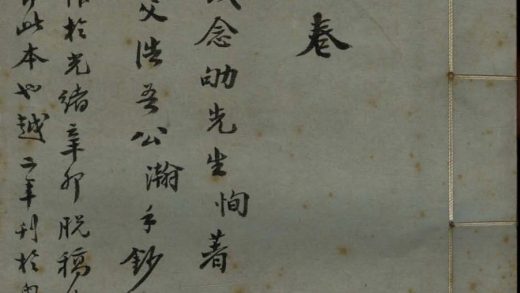 卷
念劬先生恂著
浩吾公瀚手鈔
於光緒辛卯脫稿
此本也越二年刊於